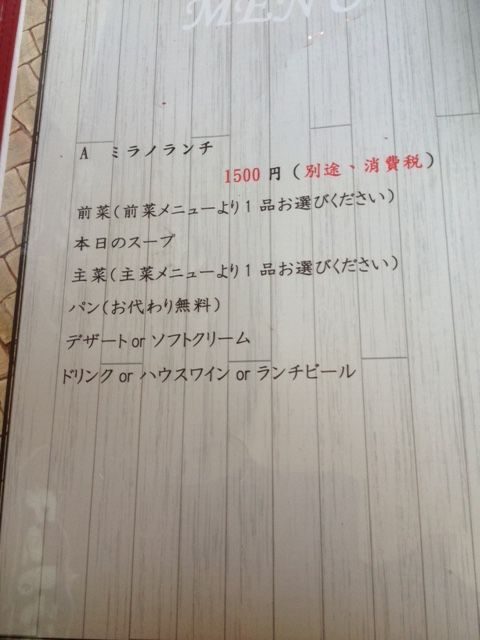 MENU
A ミラノランチ
1500円（別途、消費税）
前菜（前菜メニューより1品お選びください）
本日のスープ
主菜（主菜メニューより1品お選びください）
パン（お代わり無料）
デザート or ソフトクリーム
ドリンク or ハウスワイン or ランチビール